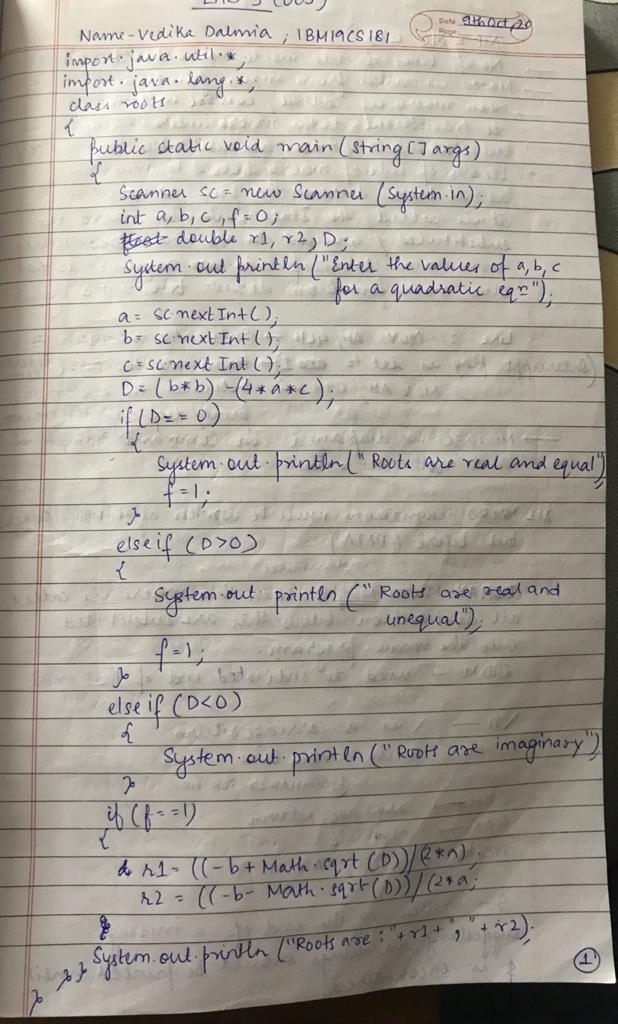 LAB 3 (OOJ)
Date 9th Oct, 20
Page
Name-Vedika Dalmia, 1BM19CS181
import.java.util.*;
import.java.lang.*;
class roots
{
public static void main (String [] args)
{
Scanner sc = new Scanner (System.in);
int a, b, c, f=0;
double r1, r2, D;
System.out println ("Enter the values of a, b, c
for a quadratic eqn");
a = sc.next Int ();
b = sc.next Int ();
c = sc.next Int ();
D = (b*b) - (4*a*c);
if (D == 0)
{
System.out.println (" Roots are real and equal");
f=1;
}
else if (D>0)
{
System.out. println (" Roots are real and
unequal");
f=1;
}
else if (D<0)
{
System.out.println ("Roots are imaginary")
}
if (f==1)
{
r1 = ((-b + Math.sqrt (D))/(2*a).
r2 = ((-b- Math.sqrt (D))/(2*a;
}
System.out.println ("Roots are : "+r1+","+r2);
} } }
1